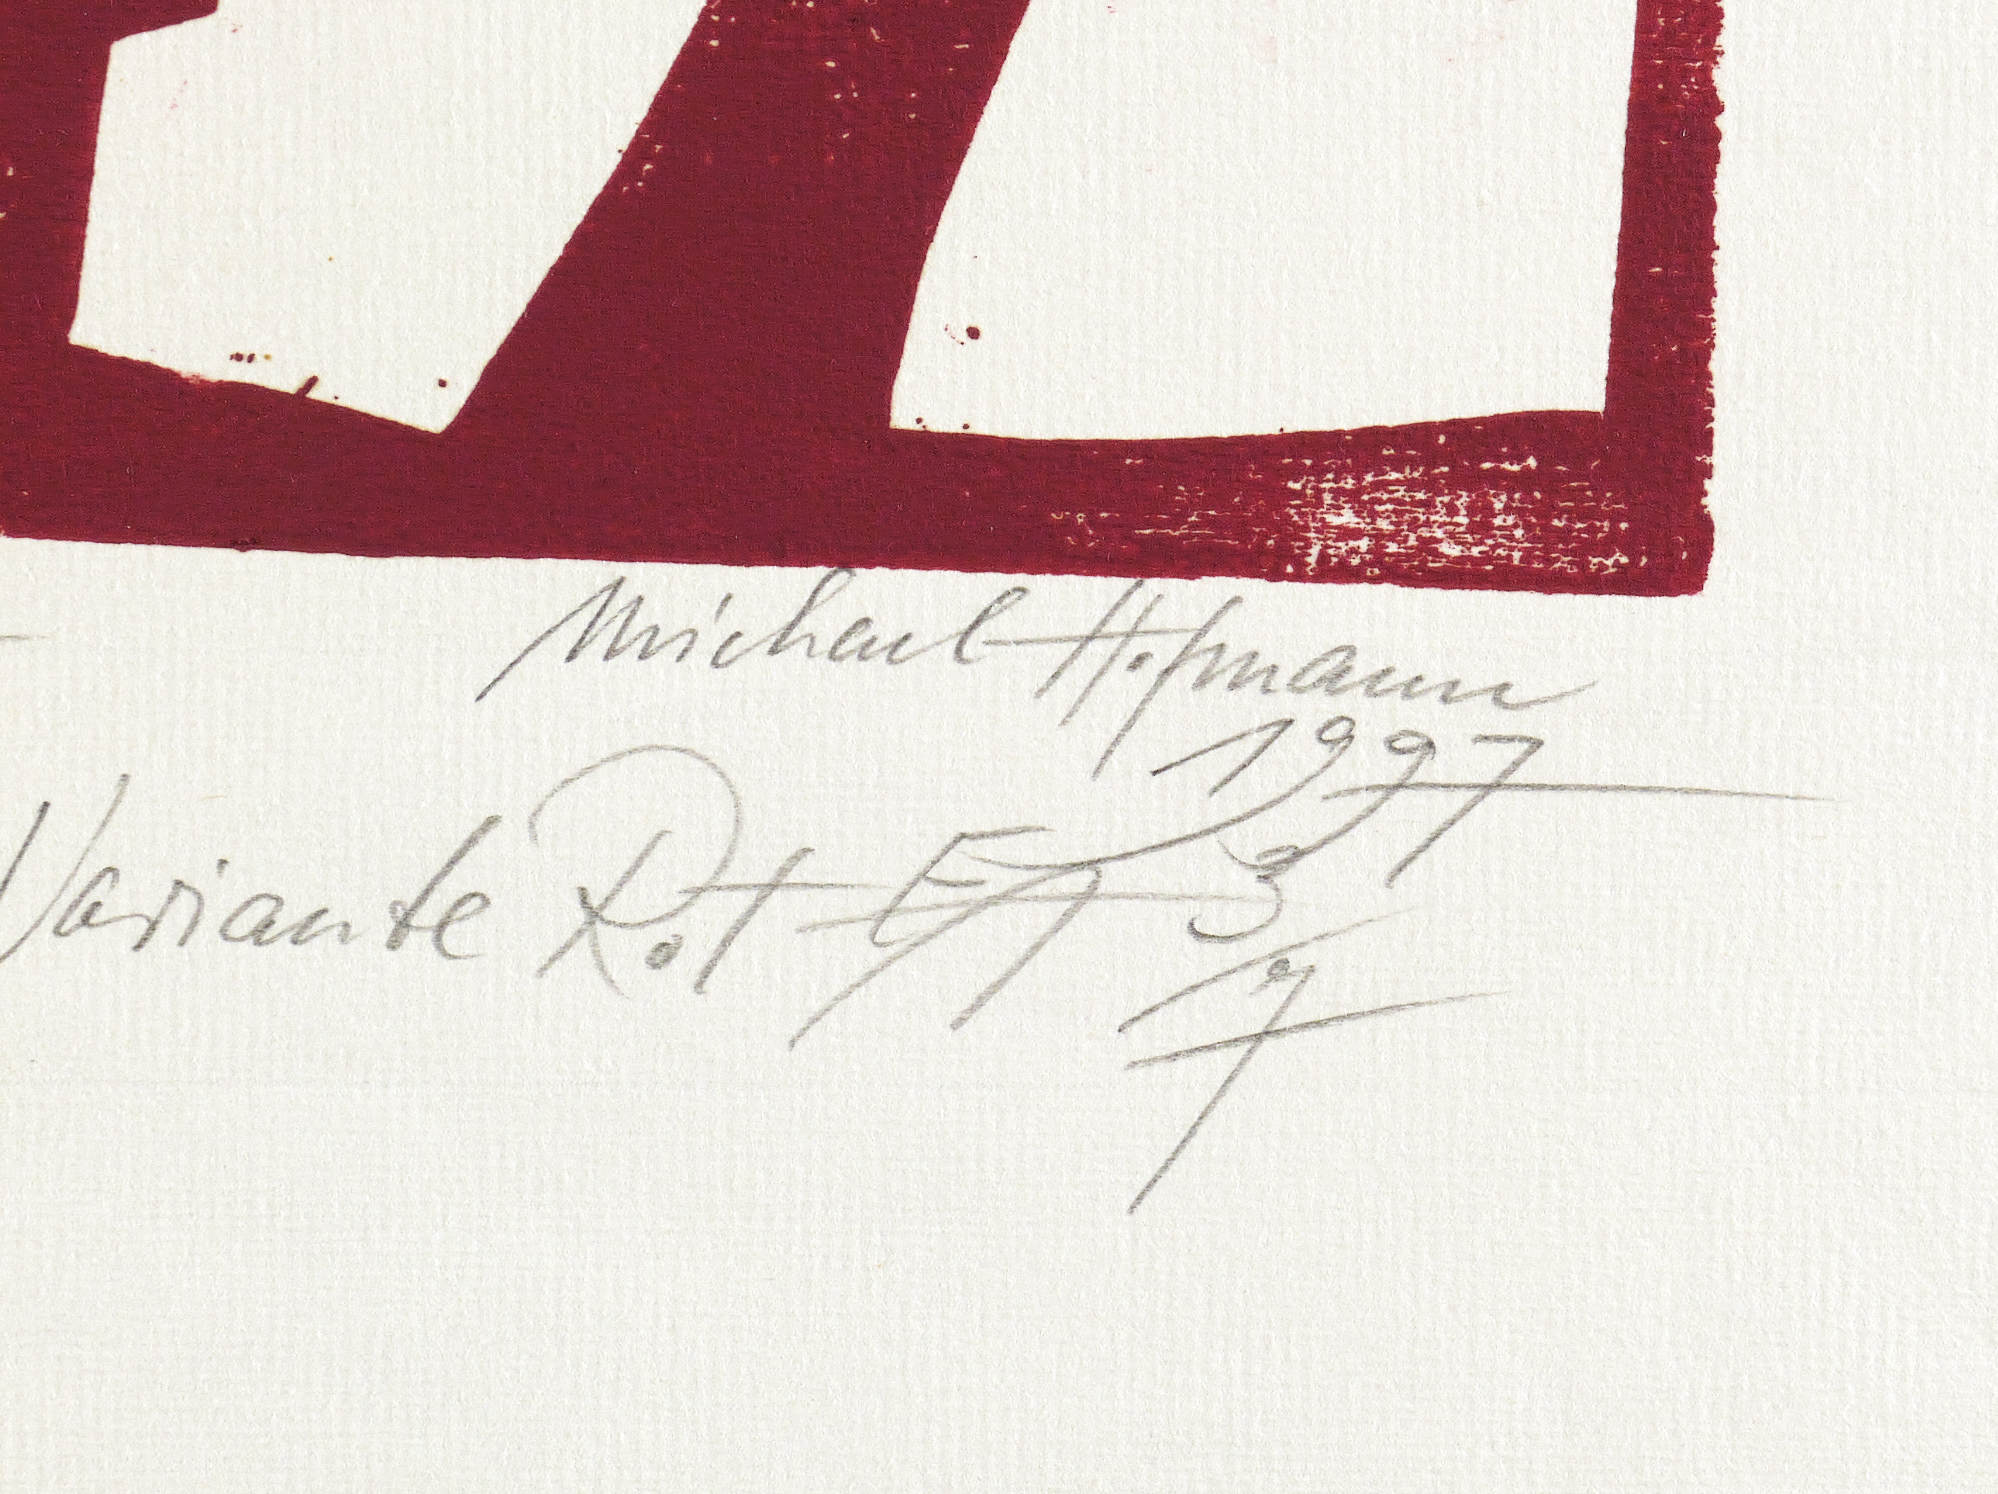 Michael Hofmann
1997
Variante Rot EA 3
/7